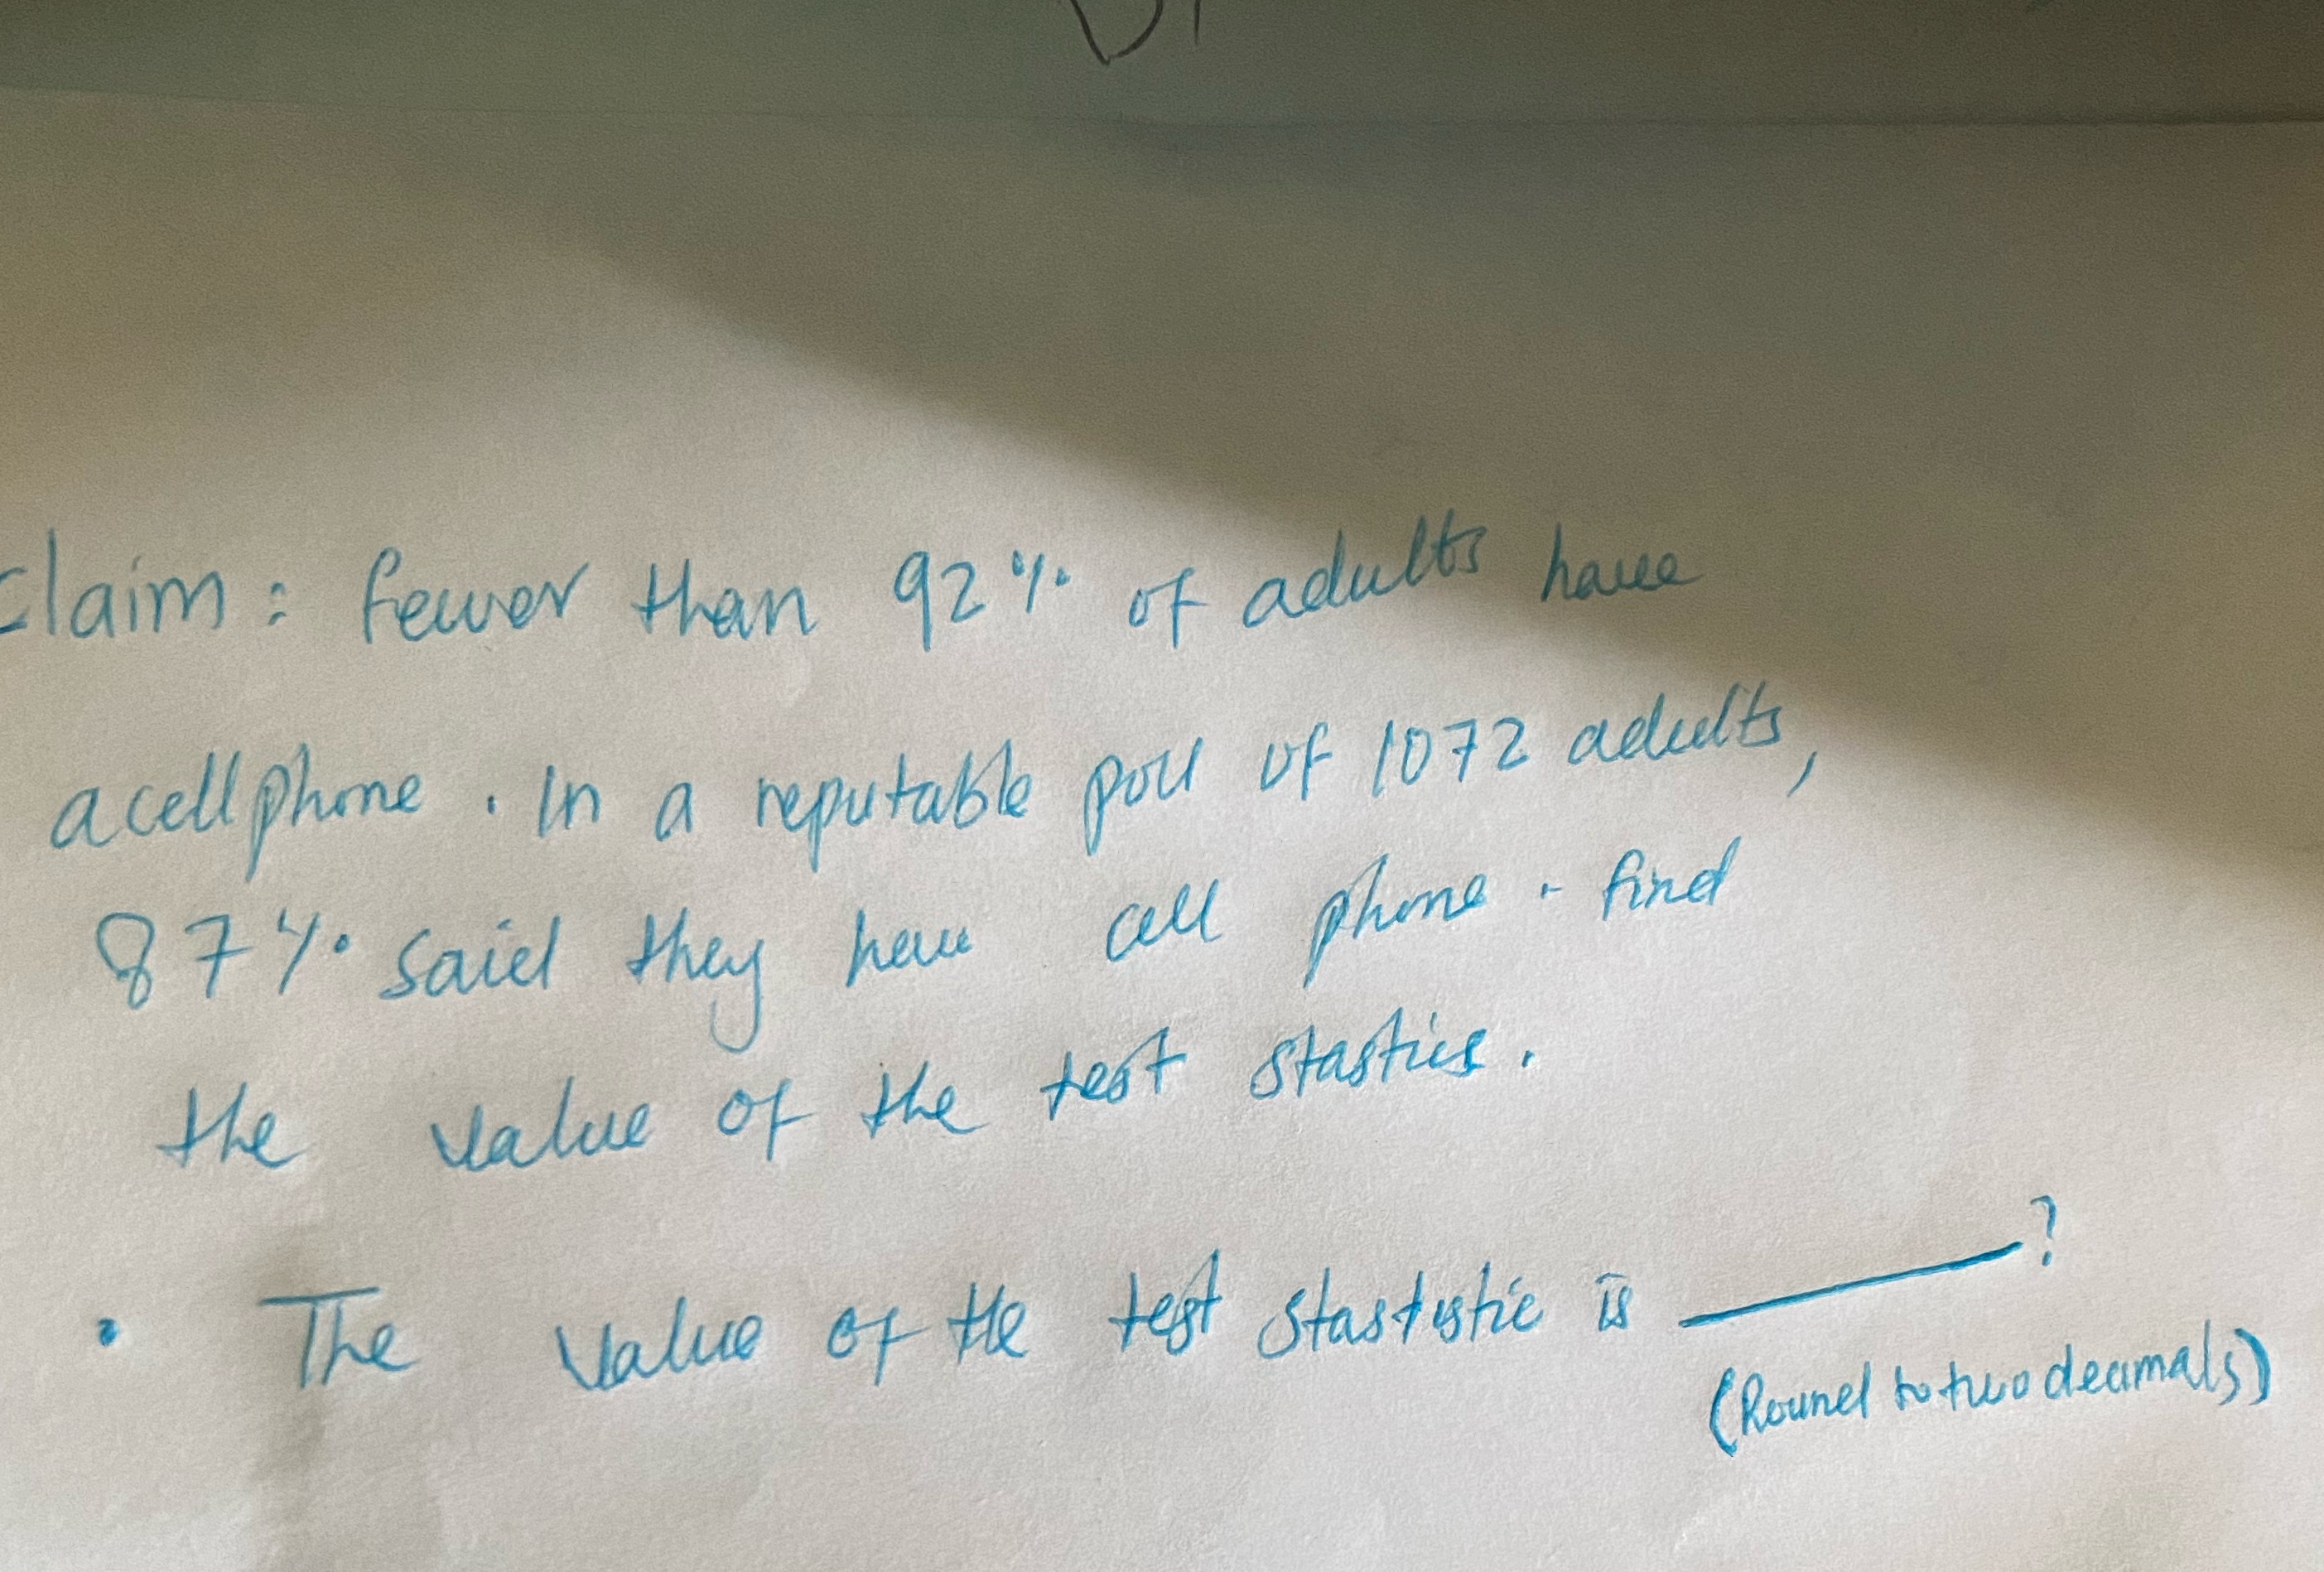 claim: fewer than 92% of adults have
a cell phone. In a reputable poll of 1072 adults,
87% said they have cell phone. find
the value of the test stastics.
• The value of the test stastistic is ______?
(Round to two decimals)